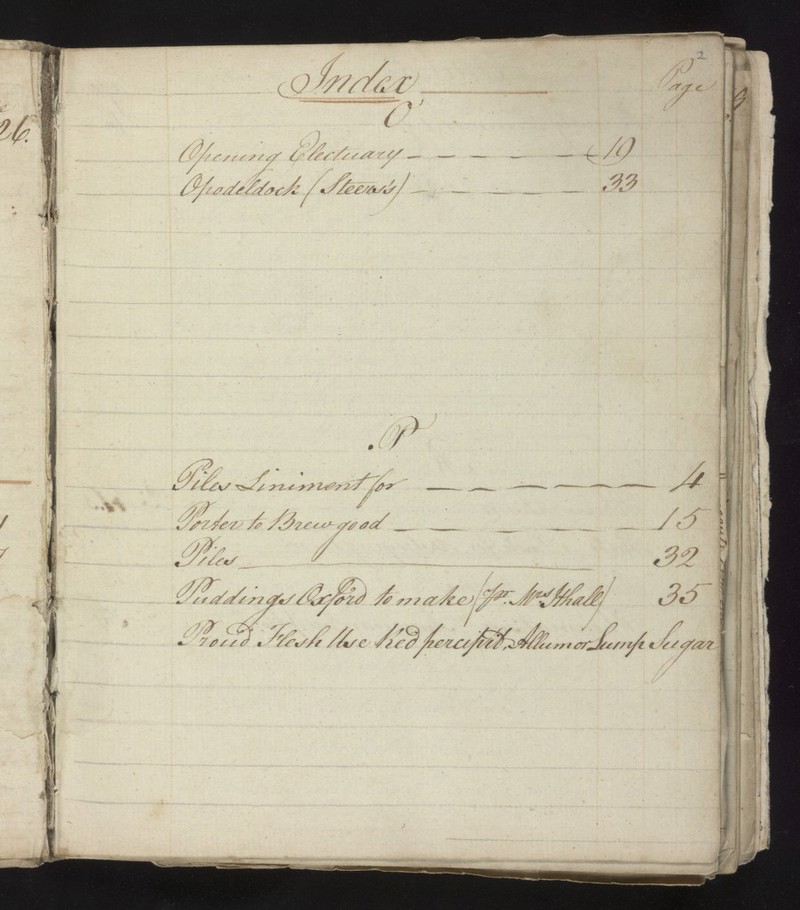 2
Index Page
O
Opening Electuary 19
Opodeldock (Steers's) 33
P
Piles Liniment for 4
Porter to Brew good 15
Piles 32
Puddings Oxford to make (pr. Mrs Hhall) 35
Proud Flesh Use Red percipit. Allum or Lump Sugar
26.